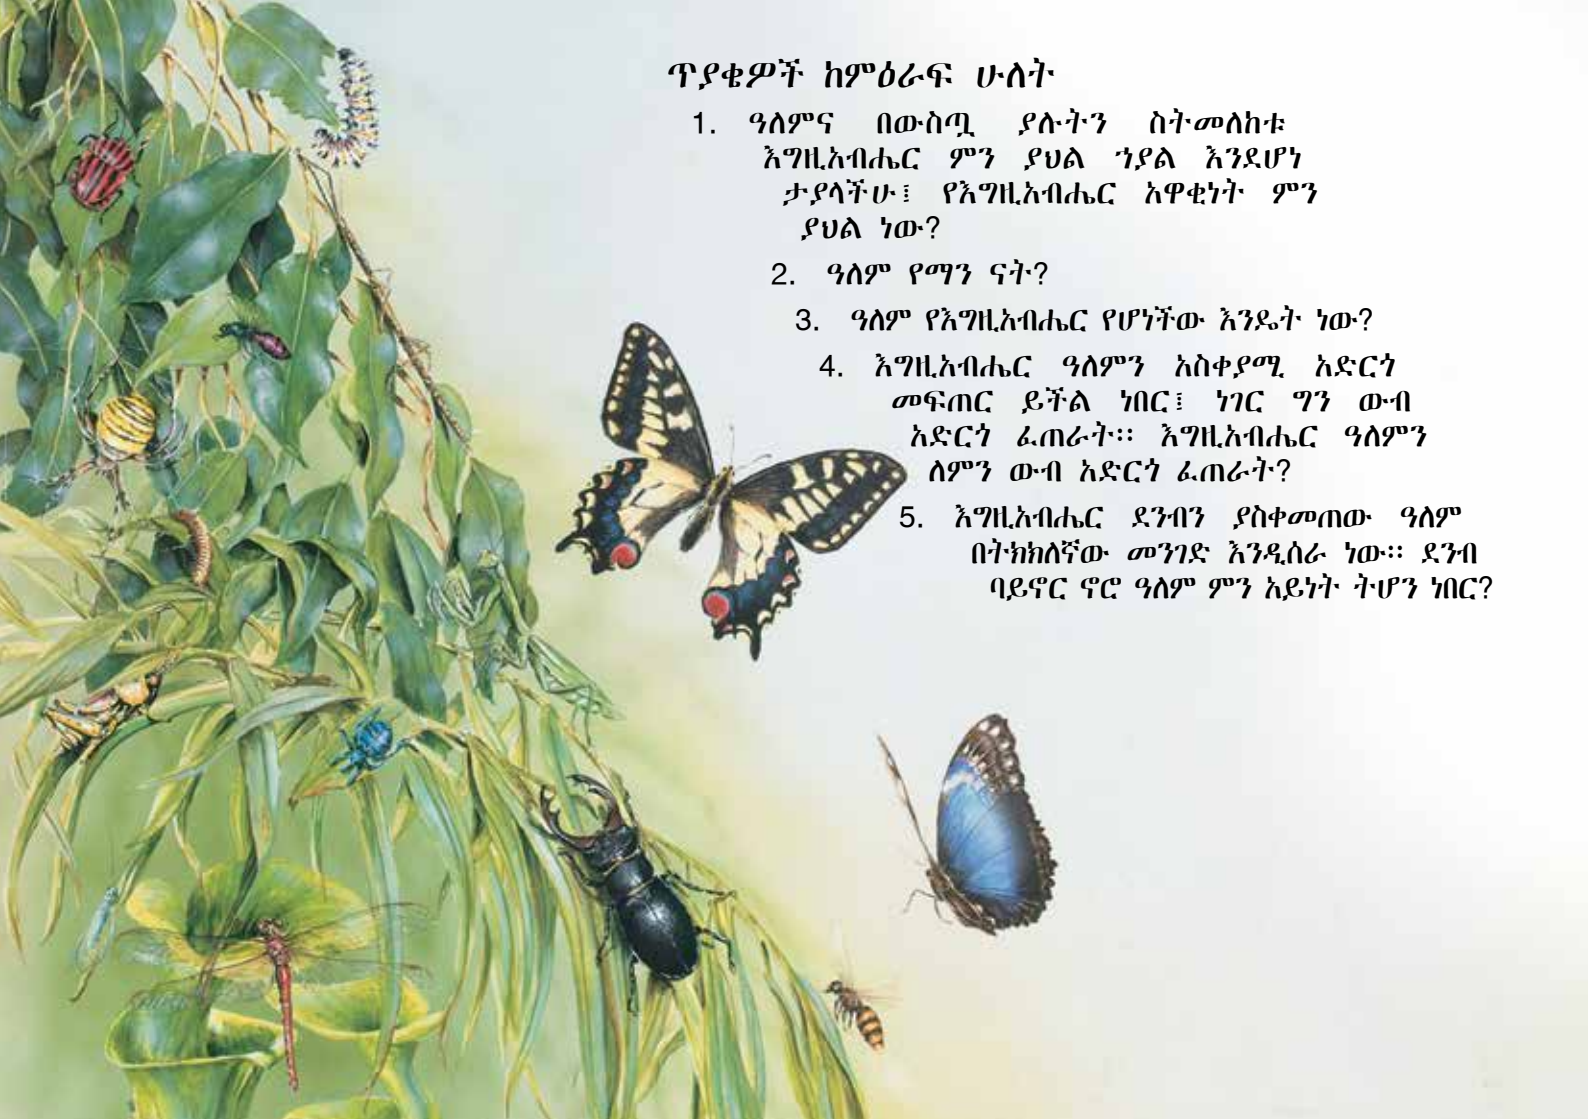 ጥያቄዎች ከምዕራፍ ሁለት
1. ዓለምና በውስጧ ያሉትን ስትመለከቱ
እግዚአብሔር ምን ያህል ኀያል እንደሆነ
ታያላችሁ፤ የእግዚአብሔር አዋቂነት ምን
ያህል ነው?
2. ዓለም የማን ናት?
3. ዓለም የእግዚአብሔር የሆነችው እንዴት ነው?
4. እግዚአብሔር ዓለምን አስቀያሚ አድርጎ
መፍጠር ይችል ነበር፤ ነገር ግን ውብ
አድርጎ ፈጠራት። እግዚአብሔር ዓለምን
ለምን ውብ አድርጎ ፈጠራት?
5. እግዚአብሔር ደንብን ያስቀመጠው ዓለም
በትክክለኛው መንገድ እንዲሰራ ነው። ደንብ
ባይኖር ኖሮ ዓለም ምን አይነት ትሆን ነበር?